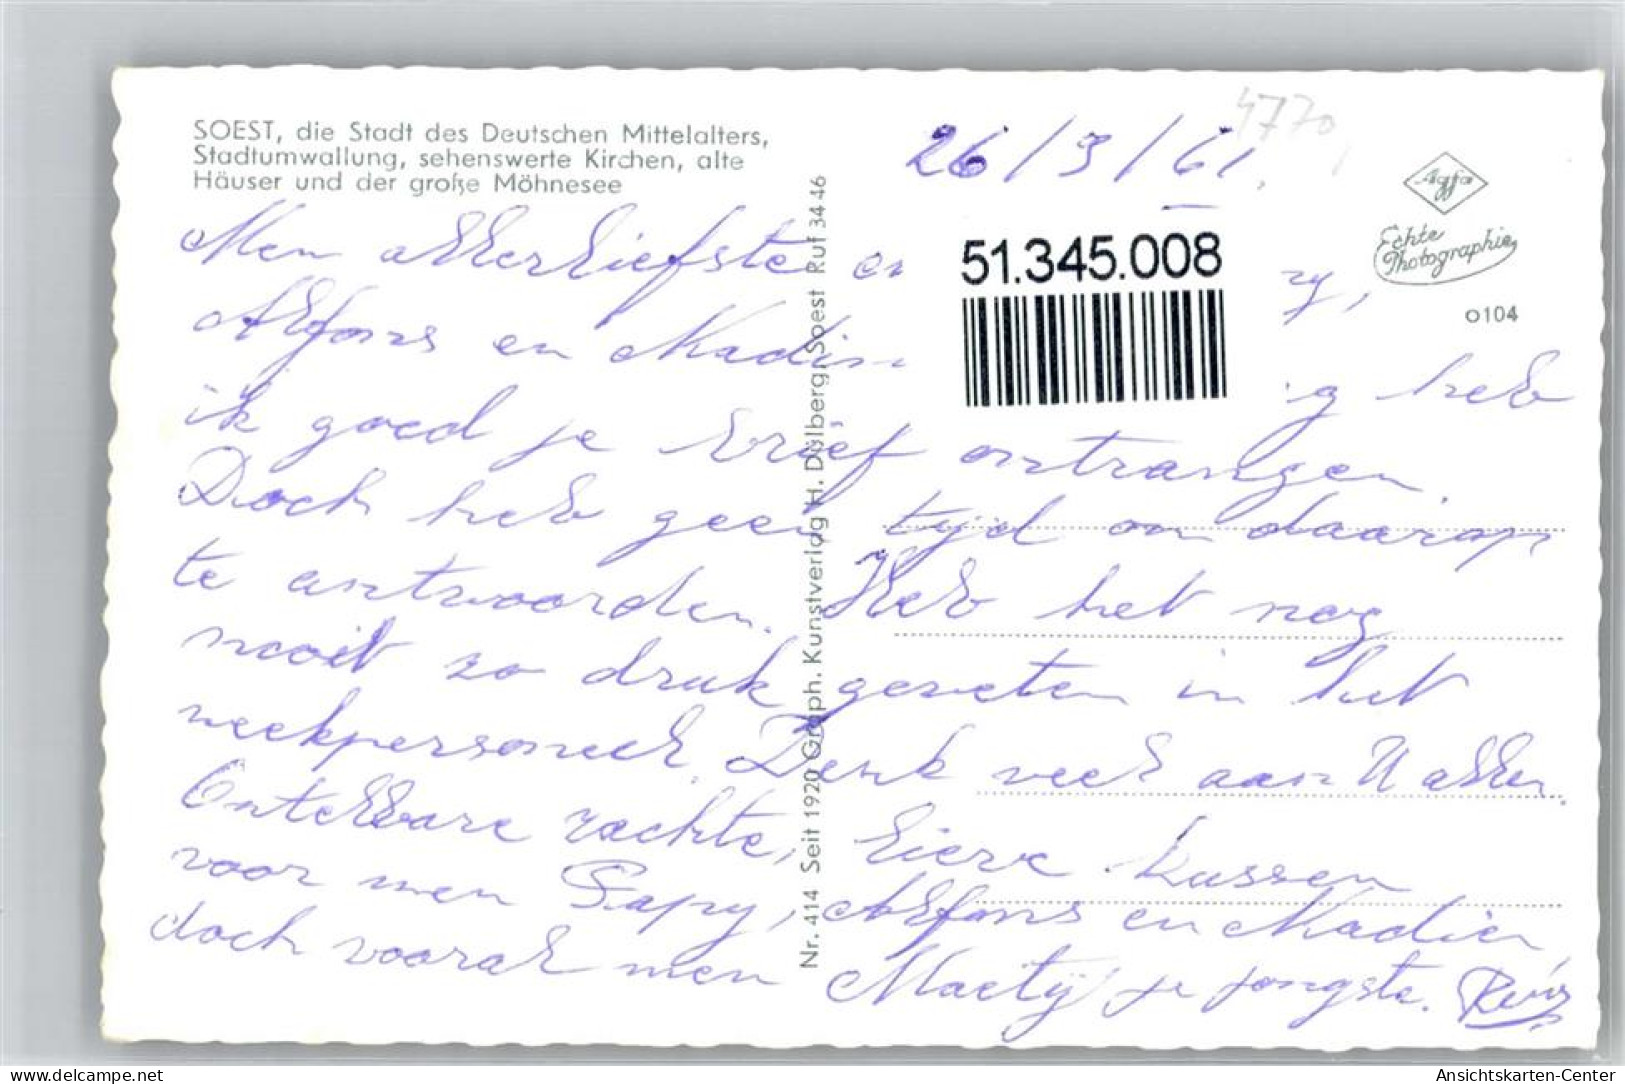 SOEST, die Stadt des Deutschen Mittelalters,
Stadtumwallung, sehenswerte Kirchen, alte
Häuser und der große Möhnesee
26/3/61
4770
Agfa
Echte
Photographie
o104
51.345.008
Men allerliefste en
Alfons en Madie
heb
ik goed je brief ontvangen.
Doch heb geen tijd om daarop
te antwoorden. Heb het nog
nooit zo druk geweten in het
weekpersoneel. Denk veel aan U allen.
Ontelbare zachte, lieve kussen
voor men Papy, Alfons en Madie en
doch vooral men Maetÿ je jongste.
Nr. 414 Seit 1920 Graph. Kunstverlag H. Dülberg, Soest Ruf 34 46
delcampe.net
Ansichtskarten-Center